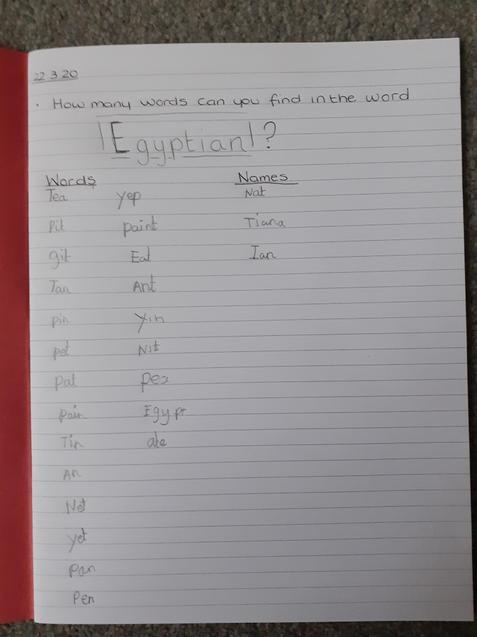 22 3 20
· How many words can you find in the word
|Egyptian|?
Words Names
Tea yep Nat
Pit paint Tiana
git Eat Ian
Tan Ant
pin Yin
pet Nit
pat pea
pain Egypt
Tin ate
An
Net
yet
Pan
Pen